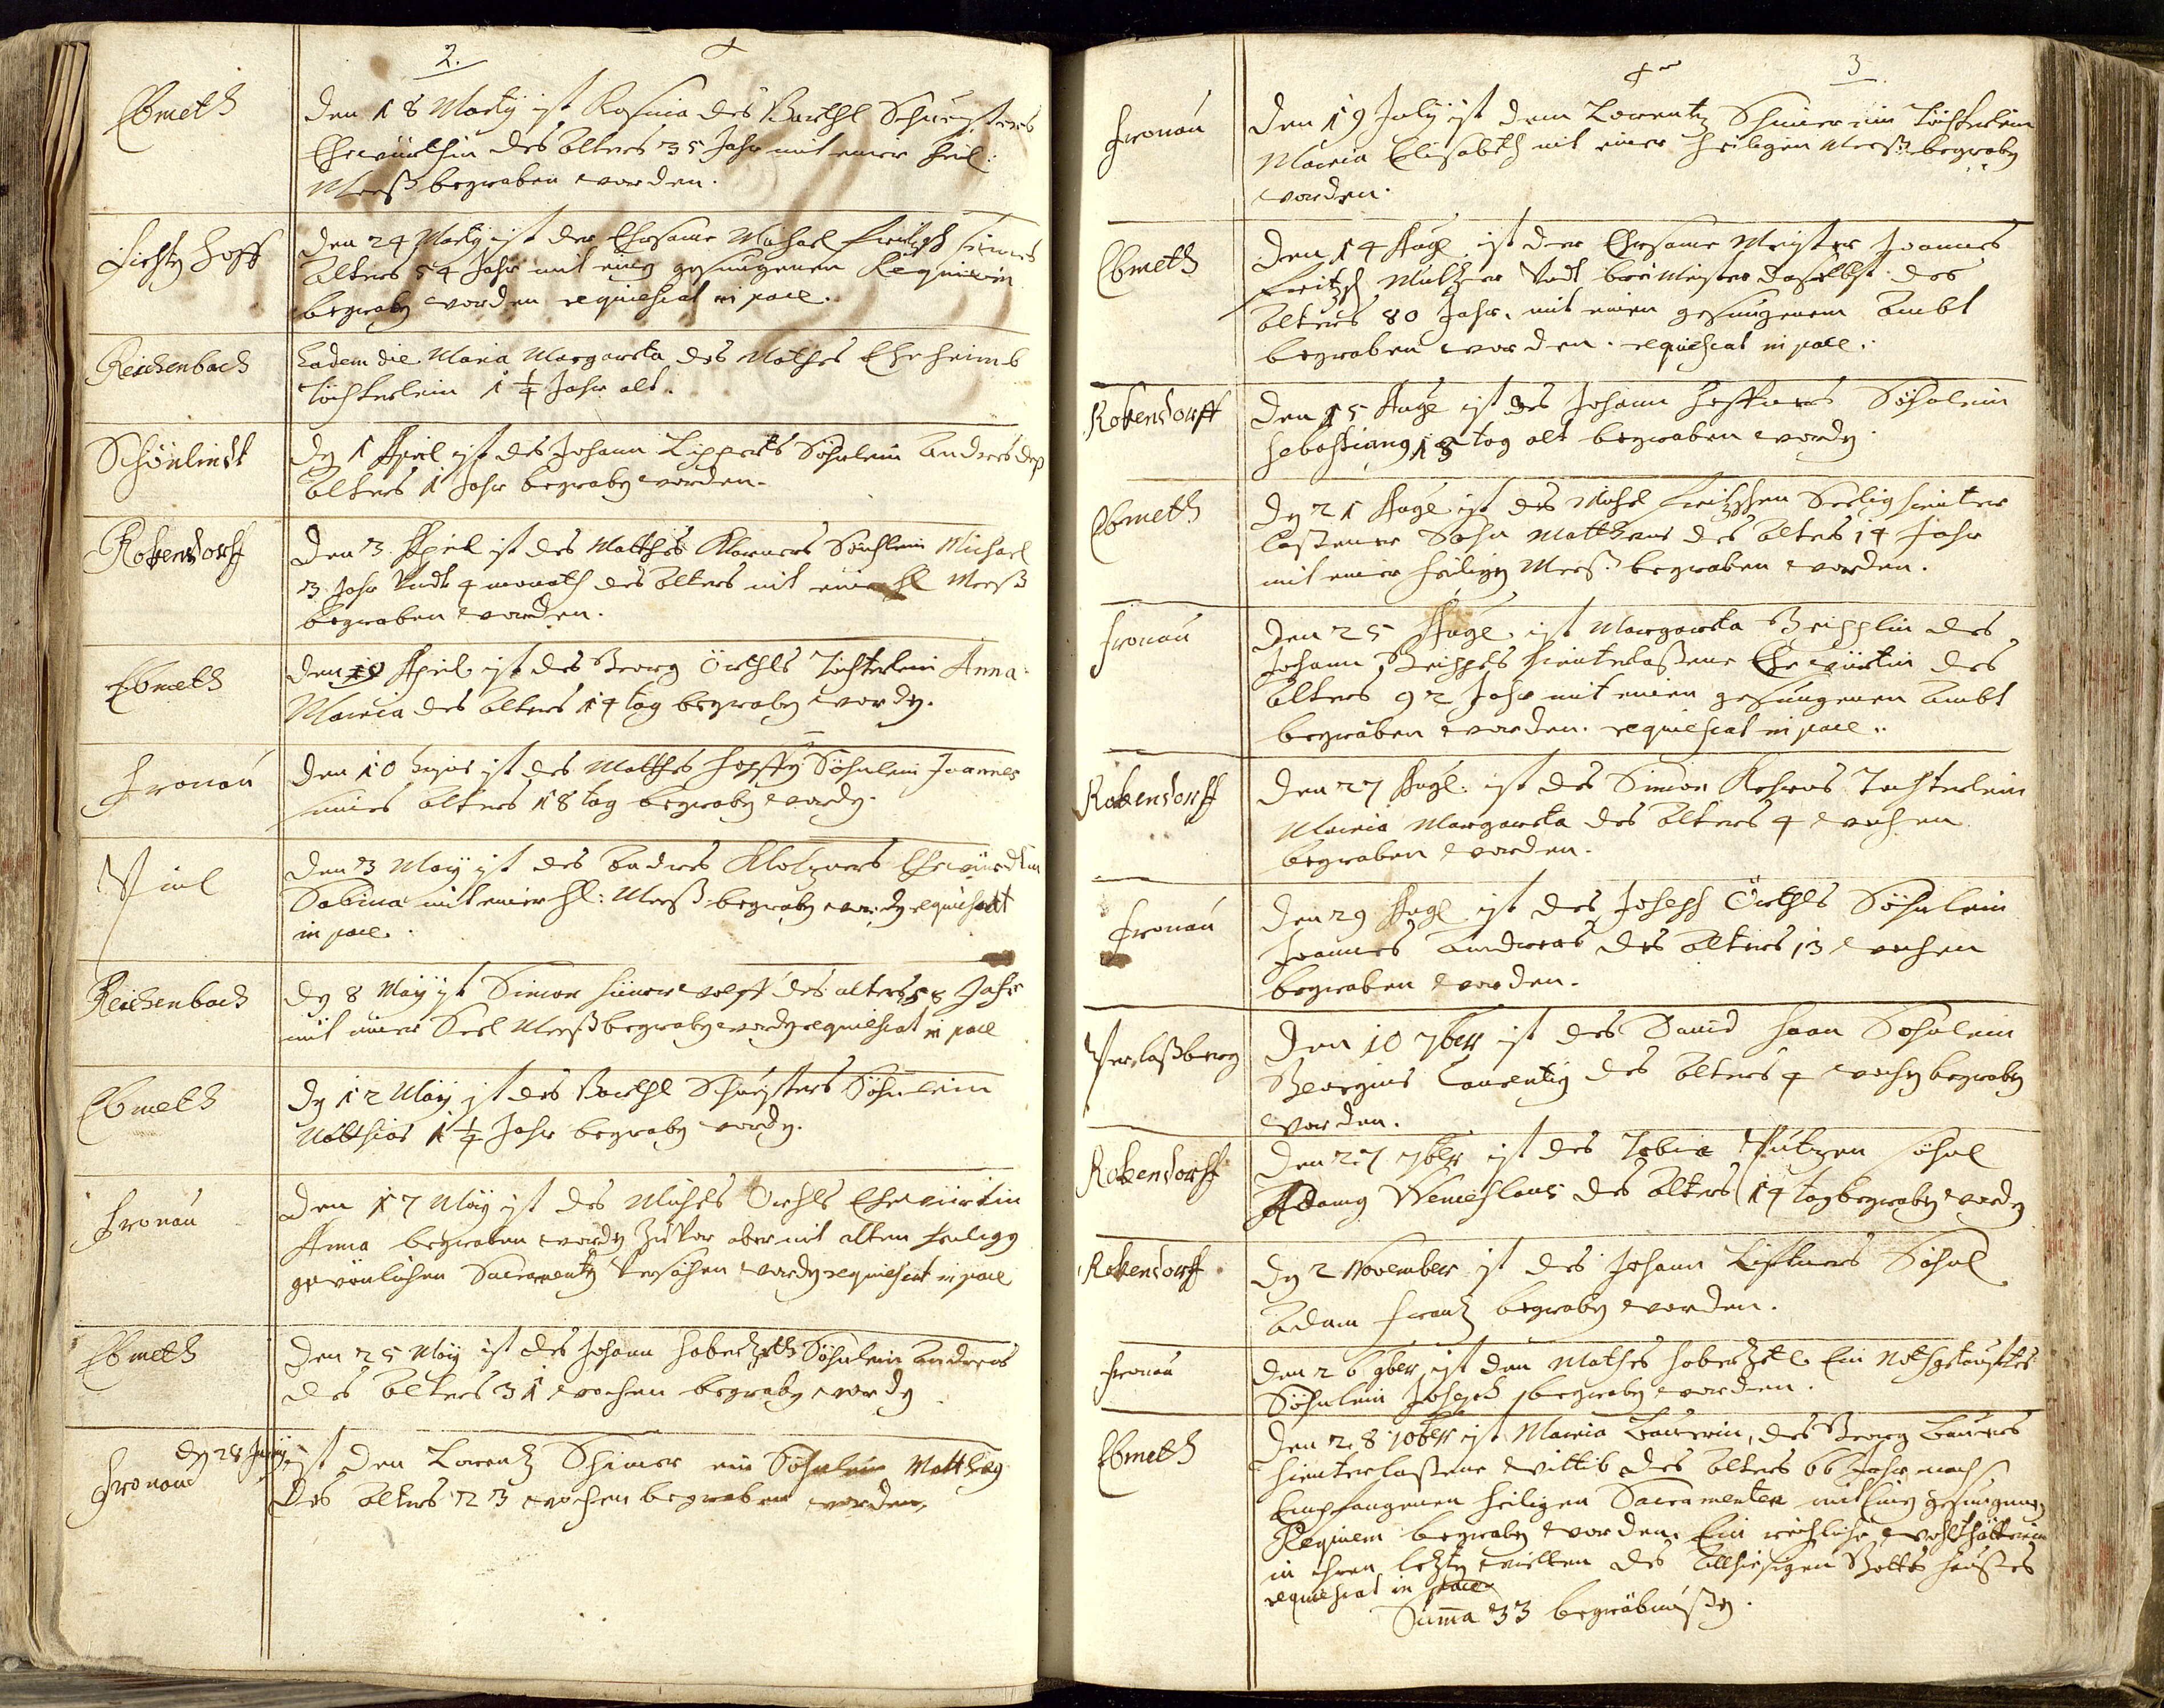 2.
Ebmeth
Den 18 Martij ist Rosina des Barthl Schusters
Ehewürthin des Alters 35 Jahr mit einer heil:
Meeß begraben worden.
Den 24 Martij ist der Ehrsame Michael Fritzsch seines
Alters 54 Jahr mit einen gesungenen Requiem
begraben worden requiescat in pace.
Reichenbach
Eadem die Maria Margareta des Mathes
Töchterlein 1 1/4 Jahr alt.
Schönlindt
Den 1 April ist des Johann Lipperts Söhnlein Andres des
Alters 1 Jahr begraben worden.
Rokendorff
Den 3. April ist des Matthes Klarners Söhnlein Michael
3. Jahr Undt 4 monath des Alters mit einer hl Meeß
begraben worden.
Ebmeth
Den 10 April ist des Georg Örthls Töchterlein Anna
Maria des Alters 14 tag begraben worden.
Fronau
Den 10 hujus ist des Matthes Söhnlein Joannes
seines Alters 18 tag begraben worden.
Den 3 Maij ist des Andres Ehewürdtin
Sabina mit einer hl: Meeß begraben worden requiescat
in pace.
Reichenbach
Den 8 Maij ist Simon des alters 58 Jahr
mit einer Seel Meeß begraben worden requiescat in pace
Ebmeth
Den 12 Maij ist des Barthl Schusters Söhnlein
Matthias 1 1/4 Jahr begraben worden.
Fronau
Den 17 Maij ist des Michls Örthls Ehewürtin
Anna begraben worden zuvor aber mit allen heiligen
gewönlichen Sacramenten Versehen worden requiescat in pace
Ebmeth
Den 25 Maij ist des Johann Haberzetls Söhnlein Andreas
des Alters 31 wochen begraben worden
Fronau
Den 28 Junij ist dem Lorentz Schimer ein Söhnlein Mattheus
des Alters 23 wochen begraben worden.
3
Fronau
Den 19 Julij ist dem Lorentz Schimer ein Töchterlein
Maria Elisabeth mit einer heiligen Meeß begraben
worden.
Ebmeth
Den 14 Aug ist der Ehrsame Meister Joannes
Fritzsch Mültzer Undt breu Meister daselbst des
Alters 80 Jahr. mit einen gesungenem Ambt
begraben worden. requiescat in pace.
Rokendorff
Den 15 Aug ist des Johann Söhnlein
Sebastianus 18 tag alt begraben worden.
Ebmeth
Den 21 Aug ist des Michl Fritzschen Seelig hinter
lassener Sohn Mattheus des Alters 14 Jahr
mit einer heiligen Meeß begraben worden.
Fronau
Den 25 Aug ist Margareta des
Johann hinterlaßene Ehewürtin des
Alters 92 Jahr mit einen gesungenen Ambt
begraben worden. requiescat in pace.
Rokendorff
Den 27 Aug ist des Simon Töchterlein
Maria Margareta des Alters 4 wochen
begraben worden.
Fronau
Den 29 Aug ist des Joseph Örthls Söhnlein
Joannes Andreas des Alters 13 wochen
begraben worden.
Perlaßberg
Den 10 7ber ist des David Haan Söhnlein
Georgius Laurentius des Alters 4 wochen begraben
worden.
Rokendorff
Den 27 7ber ist des Tobia Söhnl
Adamus Wenceslaus des Alters 14 tag begraben worden
Rokendorff
Den 2 November ist des Johann Söhnl
Adam Frantz begraben worden.
Fronau
Den 26 9ber ist dem Mathes Haberzetl Ein Nothgetaufftes
Söhnlein Joseph begraben worden.
Ebmeth
Den 28 10ber ist Maria Bauerin, des Georg Bauers
hinterlaßene wittib des Alters 66 Jahr nach
Empfangenen heiligen Sacramenten mit einen gesungenen
Requiem begraben worden. Ein reichliche wohlthätterin
in ihren letzten willen des Allhiesigen Gottes haußes
requiescat in pace
Summa 33 begräbnüßen.